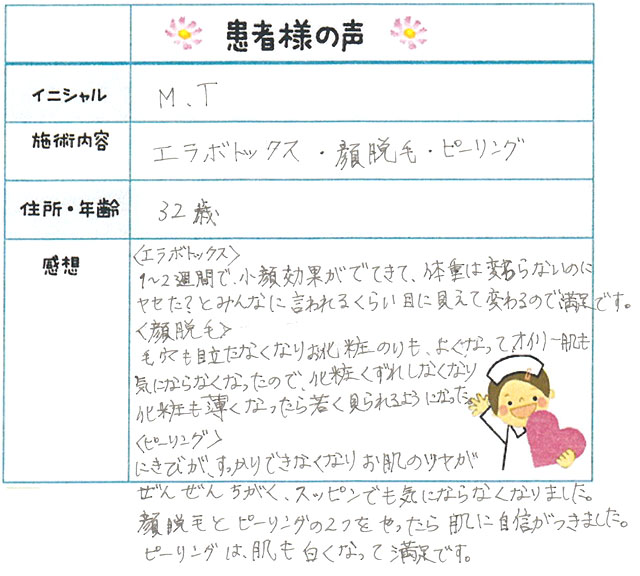 患者様の声
イニシャル
M.T
施術内容
エラボトックス・顔脱毛・ピーリング
住所・年齢
32歳
感想
〈エラボトックス〉
1〜2週間で、小顔効果がでてきて、体重は変わらないのに
ヤセた?とみんなに言われるくらい目に見えて変わるので満足です。
〈顔脱毛〉
毛穴も目立たなくなりお化粧のりも、よくなってオイリー肌も
気にならなくなったので、化粧くずれしなくなり
化粧も薄くなったら若く見られるようになった
〈ピーリング〉
にきびが、すっかりできなくなりお肌のツヤが
ぜんぜんちがく、スッピンでも気にならなくなりました。
顔脱毛とピーリングの2つをやったら肌に自信がつきました。
ピーリングは、肌も白くなって満足です。